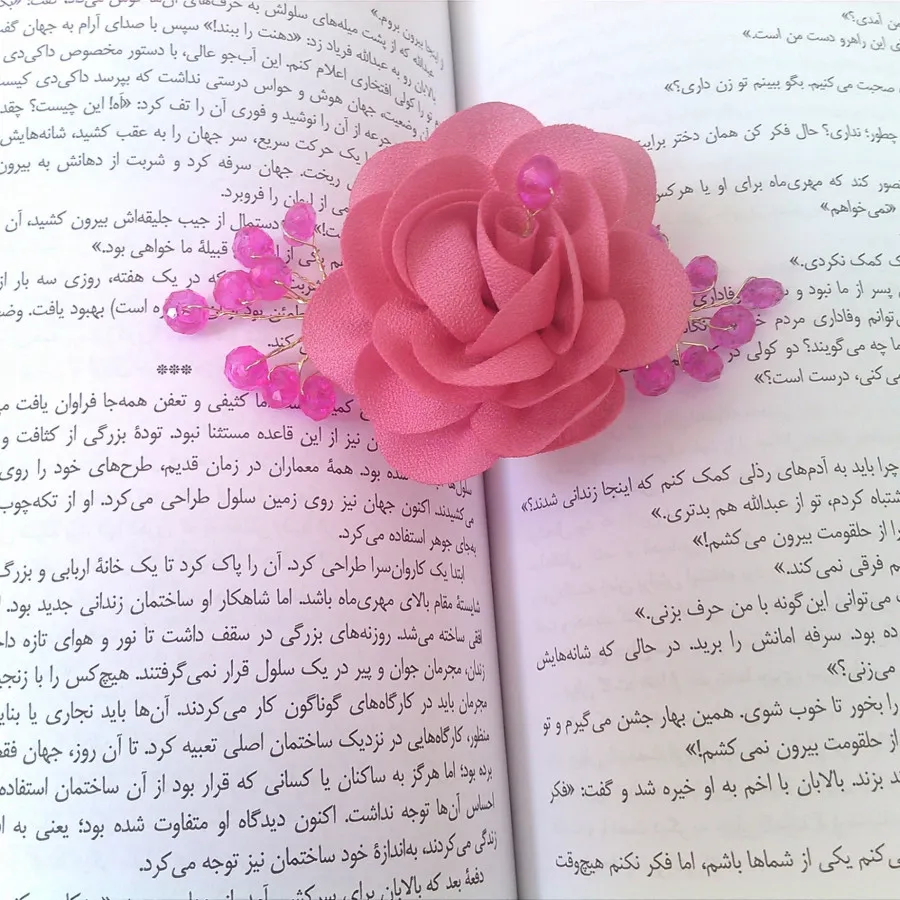 من آمدی؟»
ی این راهرو دست من است.»
صحبت می‌کنیم. بگو ببینم تو زن داری؟»
چطور؛ نداری؟ حال فکر کن همان دختر برایت
صور کند که مهری‌ماه برای او یا هر کس
«نمی‌خواهم»
ک کمک نکردی.»
پسر از ما نبود و
توانم وفاداری مردم
ما چه می‌گویند؟ دو کولی در
می‌کنی، درست است؟»
چرا باید به آدم‌های رذلی کمک کنم که اینجا زندانی شدند؟»
شتباه کردم، تو از عبدالله هم بدتری.»
را از حلقومت بیرون می‌کشم!»
م فرقی نمی‌کند.»
می‌توانی این‌گونه با من حرف بزنی.»
ده بود. سرفه امانش را برید. در حالی که شانه‌هایش
می‌زنی؟»
را بخور تا خوب شوی. همین بهار جشن می‌گیرم و تو
از حلقومت بیرون نمی‌کشم!»
ند بزند. بالابان با اخم به او خیره شد و گفت: «فکر
ی کنم یکی از شماها باشم، اما فکر نکنم هیچ‌وقت
از اینجا بیرون بروم.»
عبدالله که از پشت میله‌های سلولش به حرف‌های آن‌ها گوش
بالابان رو به عبدالله فریاد زد: «دهنت را ببند!» سپس با صدای آرام به جهان گفت
تو را کولی افتخاری اعلام کنم. این آب‌جو عالی، با دستور مخصوص داکی‌دی
وضعیت، جهان هوش و حواس درستی نداشت که بپرسد داکی‌دی کیست
جرعه از آن را نوشید و فوری آن را تف کرد: «اَه! این چیست؟
با یک حرکت سریع، سر جهان را به عقب کشید، شانه‌هایش
ریخت. جهان سرفه کرد و شربت از دهانش به بیرون
از لیوان را فروبرد.
دستمال از جیب جلیقه‌اش بیرون کشید، آن
یکی از قبیلهٔ ما خواهی بود.»
که در یک هفته، روزی سه بار از
بود بهبود یافت.
کند.
***
کثیفی و تعفن همه‌جا فراوان یافت
نیز از این قاعده مستثنا نبود. تودهٔ بزرگی از کثافت و
سلول‌ها شده بود. همهٔ معماران در زمان قدیم، طرح‌های خود را روی
می‌کشیدند. اکنون جهان نیز روی زمین سلول طراحی می‌کرد. او از تکه‌چوب
به‌جای جوهر استفاده می‌کرد.
ابتدا یک کاروان‌سرا طراحی کرد. آن را پاک کرد تا یک خانهٔ اربابی و بزرگ
شایستهٔ مقام بالای مهری‌ماه باشد. اما شاهکار او ساختمان زندانی جدید بود.
افقی ساخته می‌شد. روزنه‌های بزرگی در سقف داشت تا نور و هوای تازه
زندان، مجرمان جوان و پیر در یک سلول قرار نمی‌گرفتند. هیچ‌کس را با زنجیر
مجرمان باید در کارگاه‌های گوناگون کار می‌کردند. آن‌ها باید نجاری یا بنایی
منظور، کارگاه‌هایی در نزدیک ساختمان اصلی تعبیه کرد. تا آن روز، جهان فقط
برده بود؛ اما هرگز به ساکنان یا کسانی که قرار بود از آن ساختمان استفاده
احساس آن‌ها توجه نداشت. اکنون دیدگاه او متفاوت شده بود؛ یعنی به
زندگی می‌کردند، به‌اندازهٔ خود ساختمان نیز توجه می‌کرد.
دفعهٔ بعد که بالابان برای سرکشی آمد